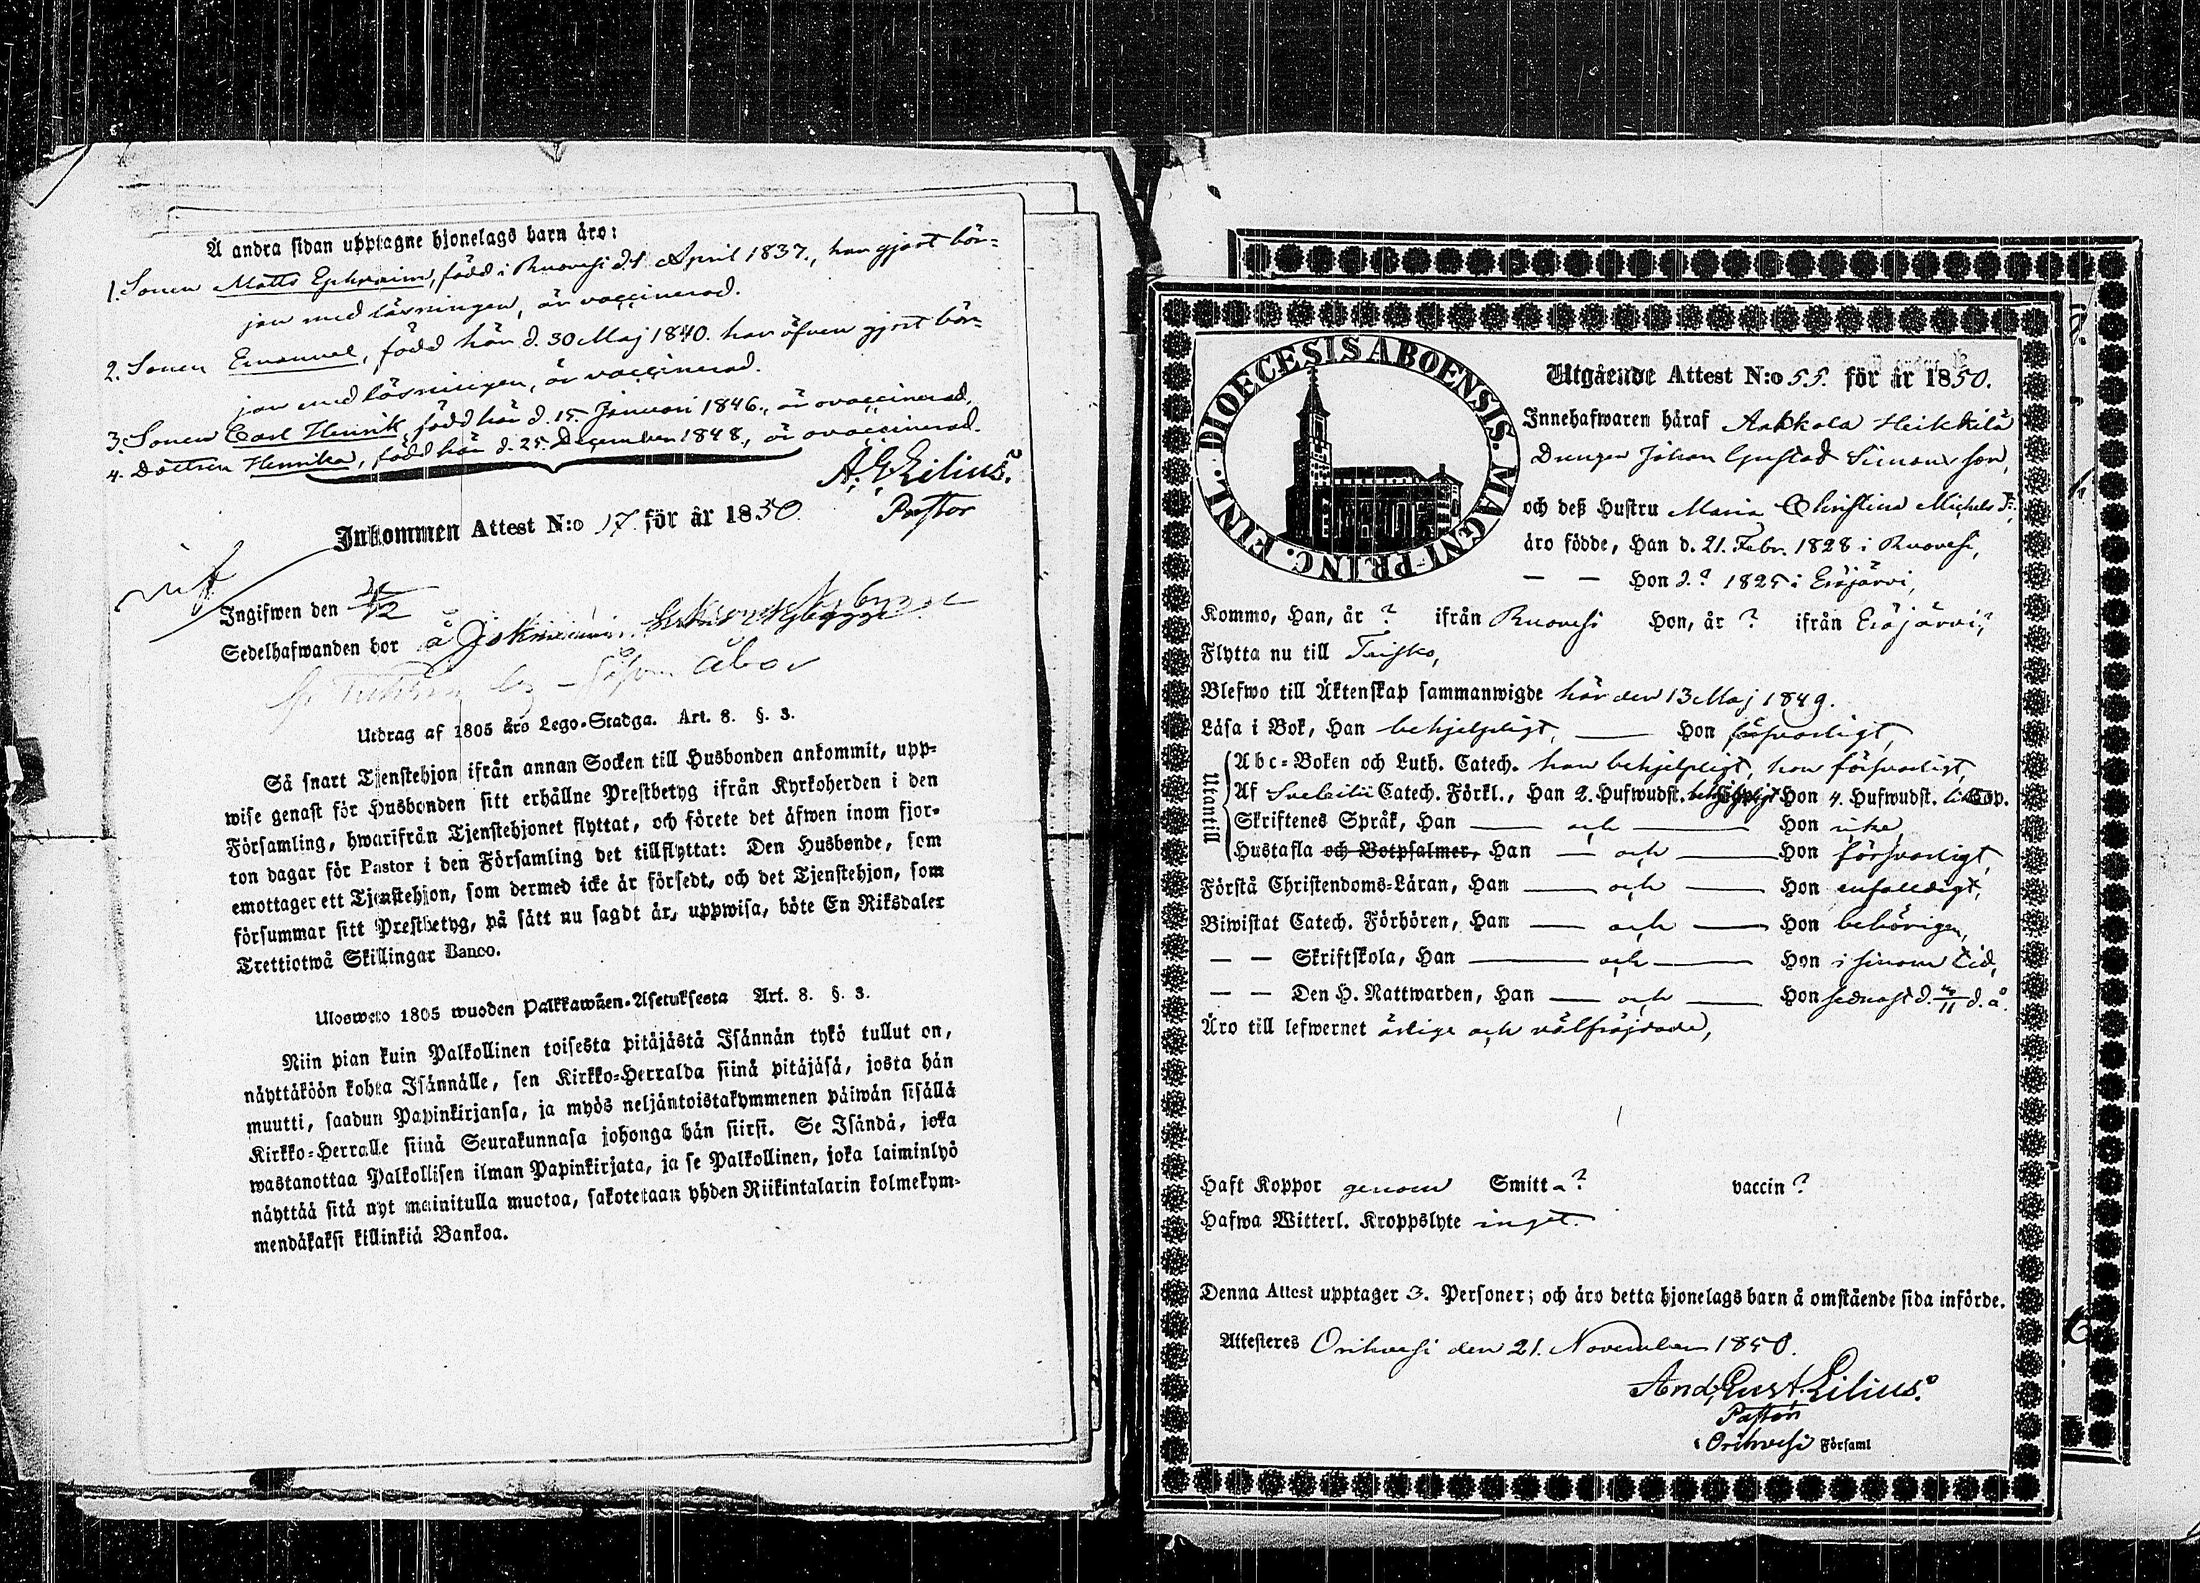 Å andra sidan upptagne hjonelags barn äro:
1. Sonen Matts Ephraim, född i Ruovesi d. 1 April 1837., har gjort bör-
jan med läsningen, är vaccinerad.
2. Sonen Emanuel, född här d. 30 Maj 1840. har äfven gjort bör-
jan med läsningen, är vaccinerad.
3. Sonen Carl Henrik, född här d. 15. Januari 1846., är ovaccinerad.
4. Dottren Henrika, född här d. 25. December 1848., är ovaccinerad.
A. G. Lilius.
Pastor
Inkommen Attest N:o 17. för år 1850.
Ingifwen den
Sedelhafwanden bor å
Åbor
Utdrag af 1805 års Lego-Stadga. Art. 8. §. 3.
Så snart Tjenstehjon ifrån annan Socken till Husbonden ankommit, upp-
wise genast för Husbonden sitt erhållne Prestbetyg ifrån Kyrkoherden i den
Församling, hwarifrån Tjenstehjonet flyttat, och förete det äfwen inom fjor-
ton dagar för Pastor i den Församling det tillflyttat: Den Husbonde, som
emottager ett Tjenstehjon, som dermed icke är försedt, och det Tjenstehjon, som
försummar sitt Prestbetyg, på sätt nu sagdt är, uppwisa, böte En Riksdaler
Trettiotwå Skillingar Banco.
Ulosweto 1805 wuoden Palkkawäen-Asetuksesta Art. 8. §. 3.
Niin pian kuin Palkollinen toisesta pitäjästä Isännän tykö tullut on,
näyttäköön kohta Isännälle, sen Kirkko-Herralda siinä pitäjäsä, josta hän
muutti, saadun Papinkirjansa, ja myös neljäntoistakymmenen päiwän sisällä
Kirkko-Herralle siinä Seurakunnasa johonga hän siirsi. Se Isändä, joka
wastanottaa Palkollisen ilman Papinkirjata, ja se Palkollinen, joka laiminlyö
näyttää sitä nyt mainitulla muotoa, sakotetaan yhden Riikintalarin kolmekym-
mendäkaksi killinkiä Bankoa.
DIOECESIS ABOENSIS. MAGNI PRINC. FINL.
Utgående Attest N:o 55. för år 1850.
Innehafwaren häraf Aakkola Heikkilä
Drengen Johan Gustaf Simonsson,
och deß Hustru Maria Christina Michels Dr:
äro födde, Han d. 21. Febr. 1828 i Ruovesi,
— — Hon d. ? 1825 i Eräjärvi,
Kommo, Han, år ? ifrån Ruovesi Hon, år ? ifrån Eräjärvi,
Flytta nu till Teisko,
Blefwo till Äktenskap sammanwigde här den 13 Maj 1849.
Läsa i Bok, Han behjelpligt, — Hon försvarligt,
Utantill
Abc-Boken och Luth. Catech. han behjelpligt, hon försvarligt,
Af Svebilii Catech. Förkl., Han 2. Hufwudst. behjelpligt Hon 4. Hufwudst. Cap.
Skriftenes Språk, Han — och — Hon icke,
Hustafla och Botpsalmer, Han — och — Hon försvarligt,
Förstå Christendoms-Läran, Han — och — Hon enfaldigt,
Biwistat Catech. Förhören, Han — och — Hon behörigen,
— — Skriftskola, Han — och — Hon i sinom tid,
— — Den H. Nattwarden, Han — och — Hon sednast d. 10/11 d. å.
Äro till lefwernet ärlige och välfrejdade,
Haft Koppor genom Smitta? vaccin?
Hafwa Witterl. Kroppslyte inget.
Denna Attest upptager 3. Personer; och äro detta hjonelags barn å omstående sida införde.
Attesteres Orihvesi den 21. November 1850.
And. Gust. Lilius.
Pastor
i Orihvesi Församl